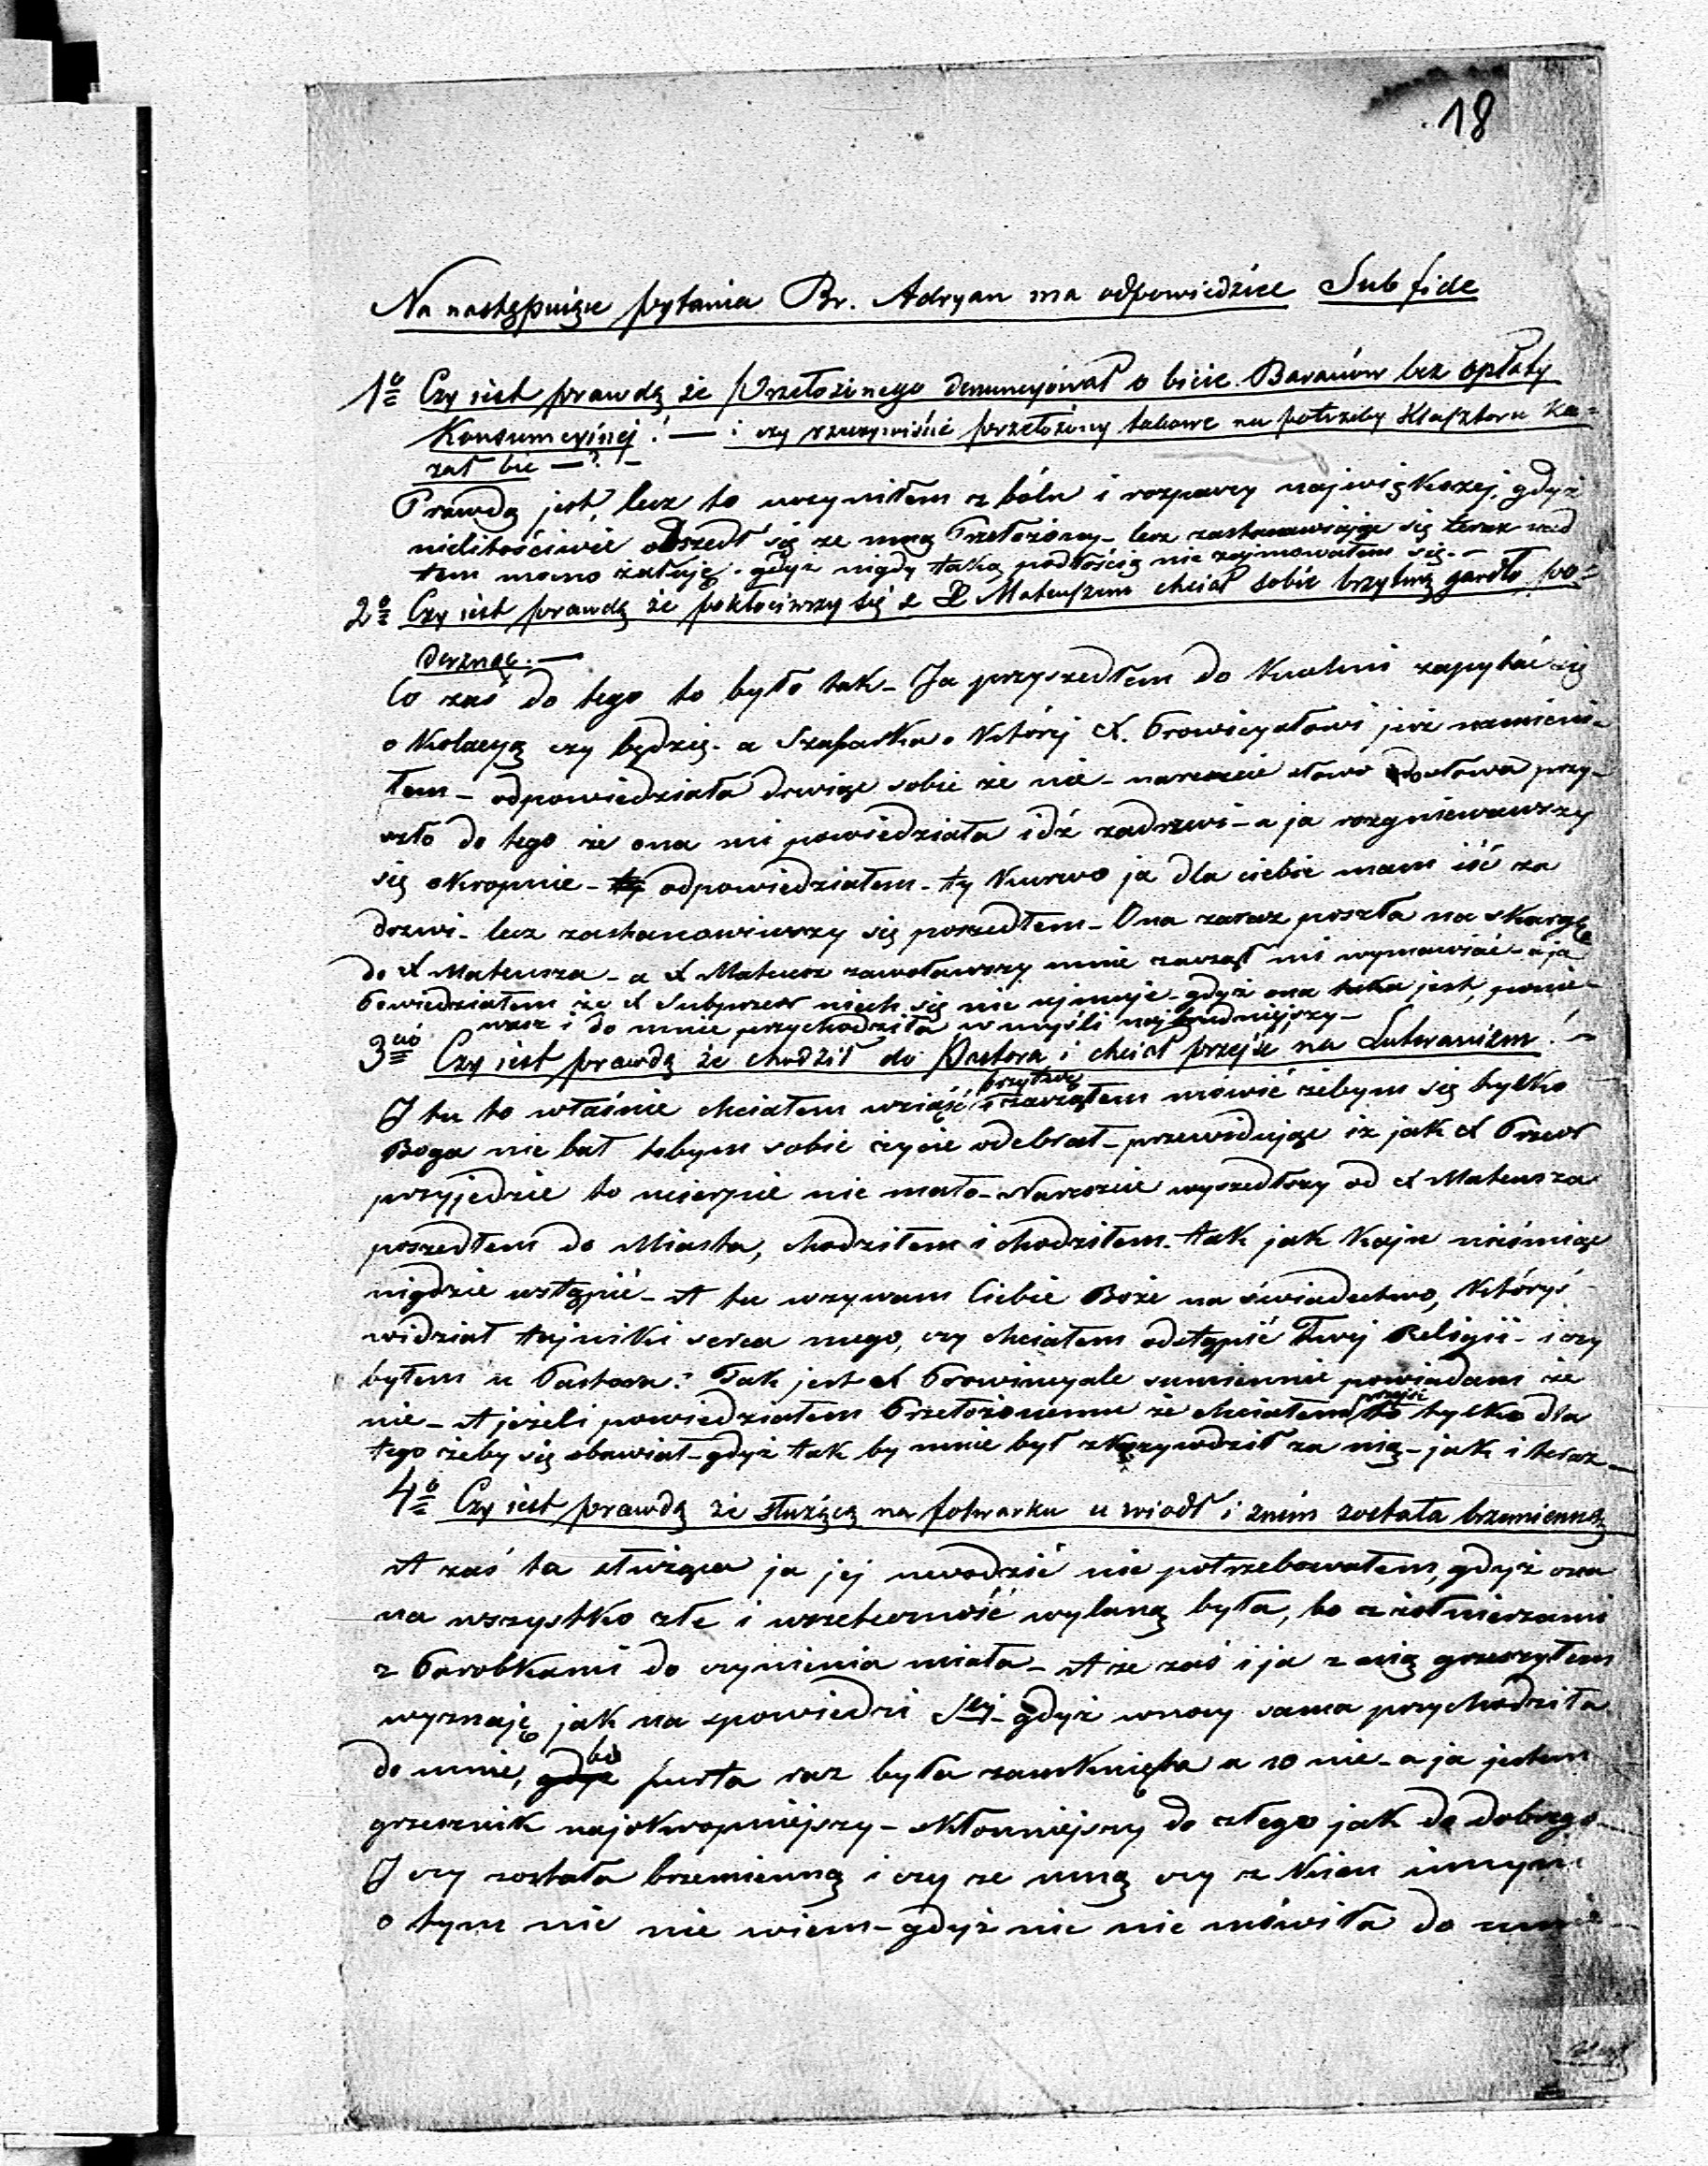 18
Na następuiące pytania Br. Adryan ma odpowiedzieć Sub fide
1º Czy iest prawdą że Przełożonego denuncyował o bicie Baranów bez opłaty
Konsumcyinej! — i czy rzeczywiście przełożony takowe na potrzeby Klasztoru ka=
zał bić —?—
Prawdą jest, lecz to uczyniłem z bólu i rozpaczy największej, gdyż
nielitościwie obszedł się ze mną Przełożony - lecz zastanawiając się teraz nad
tem mocno żałuję - gdyż nigdy taką podłością nie zajmowałem się. -
2º Czy iest prawdą że pokłociwszy się z X Mateuszem chciał sobie brzytwą gardło po=
derznąć. —
Co zaś do tego to było tak - Ja przyszedłem do kuchni zapytać się
o Kolacyą czy będzie - a Szafarka o której X. Prowicyałowi już namieni-
łem - odpowiedziała drwiąc sobie że nie - nareszcie słowo do słowa przy-
szło do tego że ona mi powiedziała idź zadrzwi - a ja rozgniewawszy
się okropnie - ty odpowiedziałem - ty kurwo ja dla ciebie mam iść za
drzwi - lecz zastanowiwszy się poszedłem - Ona zaraz poszła na skargę
do X Mateusza - a X Mateusz zawoławszy mnie zaczął mi wymawiać - a ja
Powiedziałem że X Subprzeor niech się nie ujmuje - gdyż ona taka jest, ponie-
waż i do mnie przychodziła w myśli najbrudniejszy -
3cio Czy iest prawdą że chodził do Pastora i chciał przejść na Luteranizm! -
I tu to właśnie chciałem wziąść brzytwę i zacząłem mówić żebym się tylko
Boga nie bał tobym sobie życie odebrał - przewidując iż jak X Przeor
przyjedzie to ucierpie nie mało - Nareszcie wyszedłszy od X Mateusza
poszedłem do Miasta, chodziłem i chodziłem - tak jak Kain nieśmiąc
nigdzie wstąpić - A tu wzywam Ciebie Boże na świadectwo, któryś
widział tajniki serca mego, czy chciałem odstąpić Twej Religii - i czy
byłem u Pastora? Tak jest X Prowincyale sumiennie powiadam że
nie - A jeżeli powiedziałem Przełożonemu że chciałem przejść to tylko dla
tego żeby się obawiał - gdyż tak by mnie był skrzywdził za nią - jak i teraz -
4º Czy iest prawdą że służącą na folwarku uwiodł i znim została brzemienną
A zaś ta służąca ja jej uwodzić nie potrzebowałem, gdyż ona
na wszystko złe i wszeteczność wylaną była, bo z żołnierzami
z Parobkami do czynienia miała - A że zaś i ja z nią grzeszyłem
wyznaję jak na spowiedzi Stej - gdyż wnocy sama przychodziła
do mnie, gdyż bo furta raz była zamknięta a 10 nie - a ja jestem
grzesznik najokropniejszy - skłonniejszy do złego jak do dobrego -
I czy została brzemienną i czy ze mną czy z kiem innym
o tym nic nie wiem - gdyż nic nie mówiła do mnie -